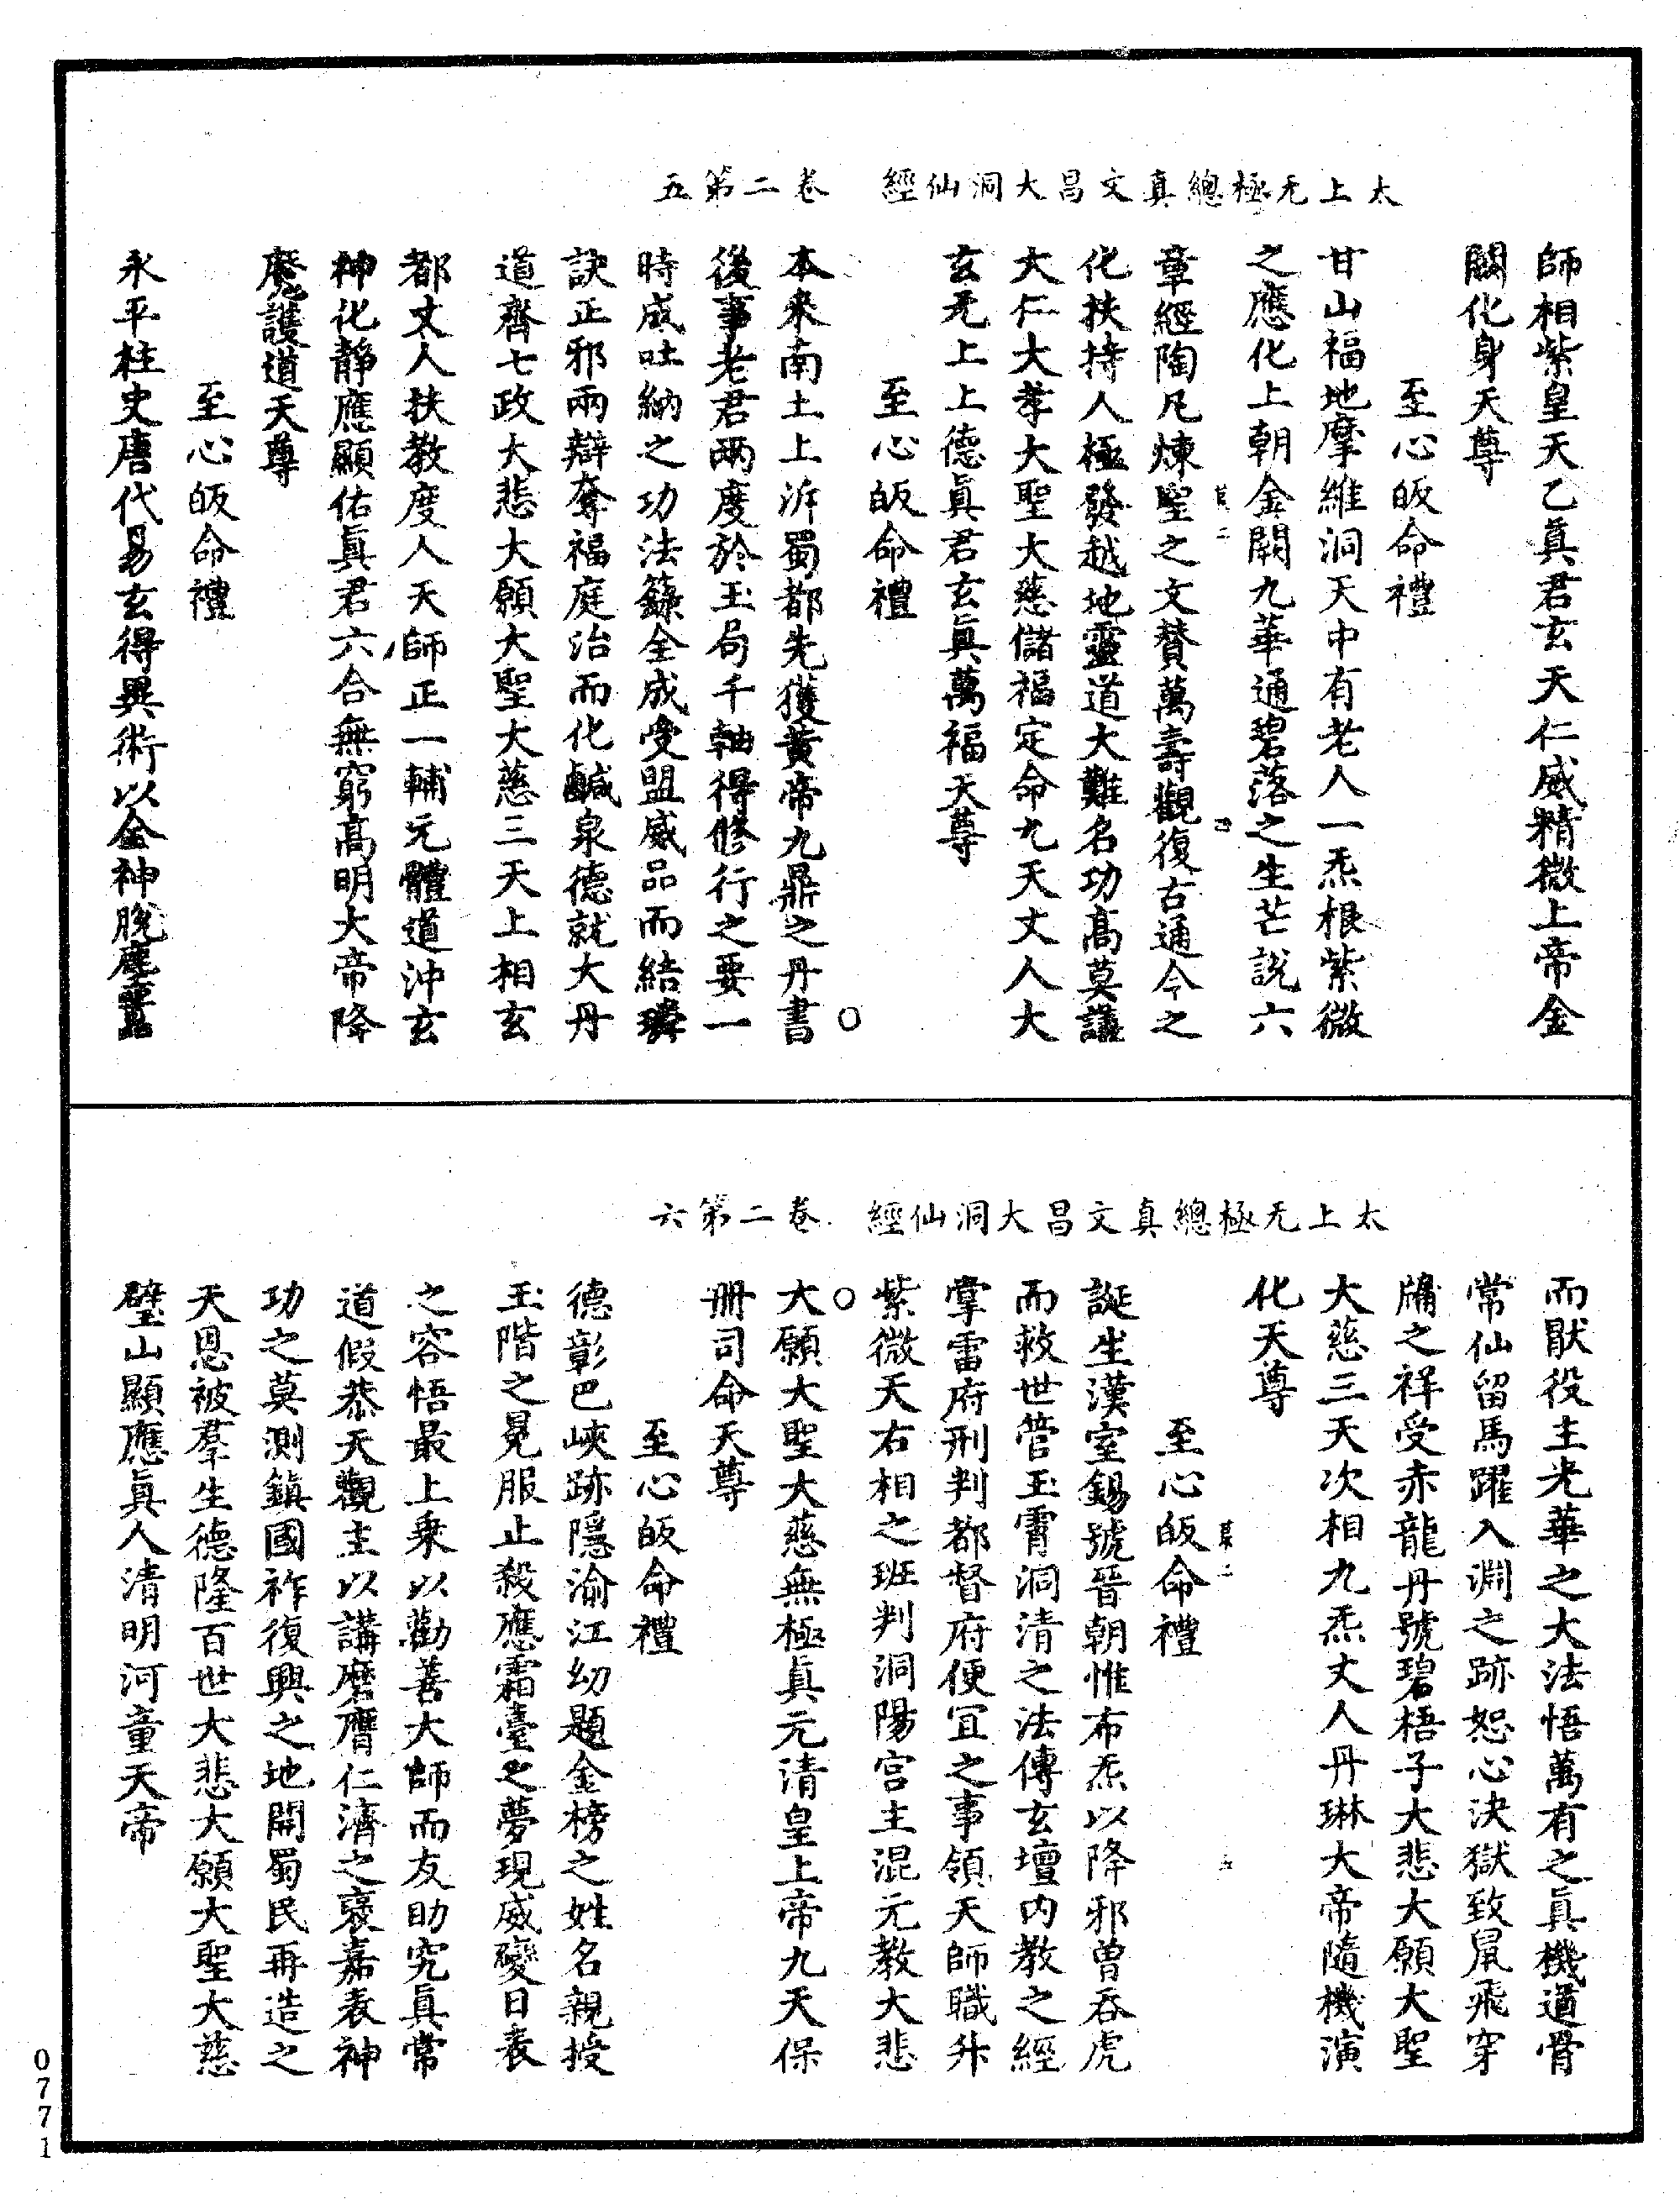 太上无極總真文昌大洞仙經　卷二第五
師相紫皇天乙眞君玄天仁威精微上帝金
闕化身天尊
至心皈命禮
甘山福地摩維洞天中有老人一炁根紫微
之應化上朝金闕九華通碧落之生芒說六
章經陶凡煉聖之文贊萬壽觀復古通今之
化扶持人極發越地靈道大難名功高莫議
大仁大孝大聖大慈儲福定命九天丈人大
玄无上上德眞君玄眞萬福天尊
至心皈命禮
本來南土上泝蜀都先獲黄帝九鼎之丹書
後事老君兩度於玉局千軸得修行之要一
時成吐納之功法籙全成受盟威品而結璘
訣正邪兩辯奪福庭治而化鹹泉德就大丹
道齊七政大悲大願大聖大慈三天上相玄
都丈人扶教度人天師正一輔元體道沖玄
神化靜應顯佑眞君六合無窮高明大帝降
魔護道天尊
至心皈命禮
永平柱史唐代易玄得異術以金神脫塵囂
太上无極總真文昌大洞仙經　卷二第六
而猒役主光華之大法悟萬有之眞機道骨
常仙留馬躍入淵之跡恕心決獄致鼠飛穿
牗之祥受赤龍丹號碧梧子大悲大願大聖
大慈三天次相九炁丈人丹琳大帝隨機演
化天尊
至心皈命禮
誕生漢室錫號晉朝惟布炁以降邪曾吞虎
而救世管玉霄洞清之法傳玄壇内教之經
掌雷府刑判都督府便冝之事領天師職升
紫微天右相之班判洞陽宫主混元教大悲
大願大聖大慈無極眞元清皇上帝九天保
册司命天尊
至心皈命禮
德彰巴峽跡隱渝江幼題金榜之姓名親授
玉階之冕服止殺應霜臺之夢現威變日表
之容悟最上乗以勸善大師而友助究眞常
道假恭天觀主以講磨膺仁濟之褒嘉表神
功之莫測鎮國祚復興之地開蜀民再造之
天恩被羣生德隆百世大悲大願大聖大慈
璧山顯應眞人清明河童天帝
0771